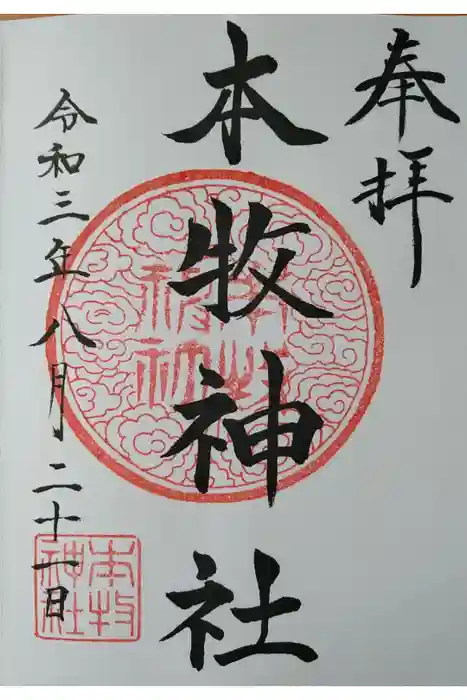 奉拝
本牧神社
令和三年八月二十一日
本牧
神社